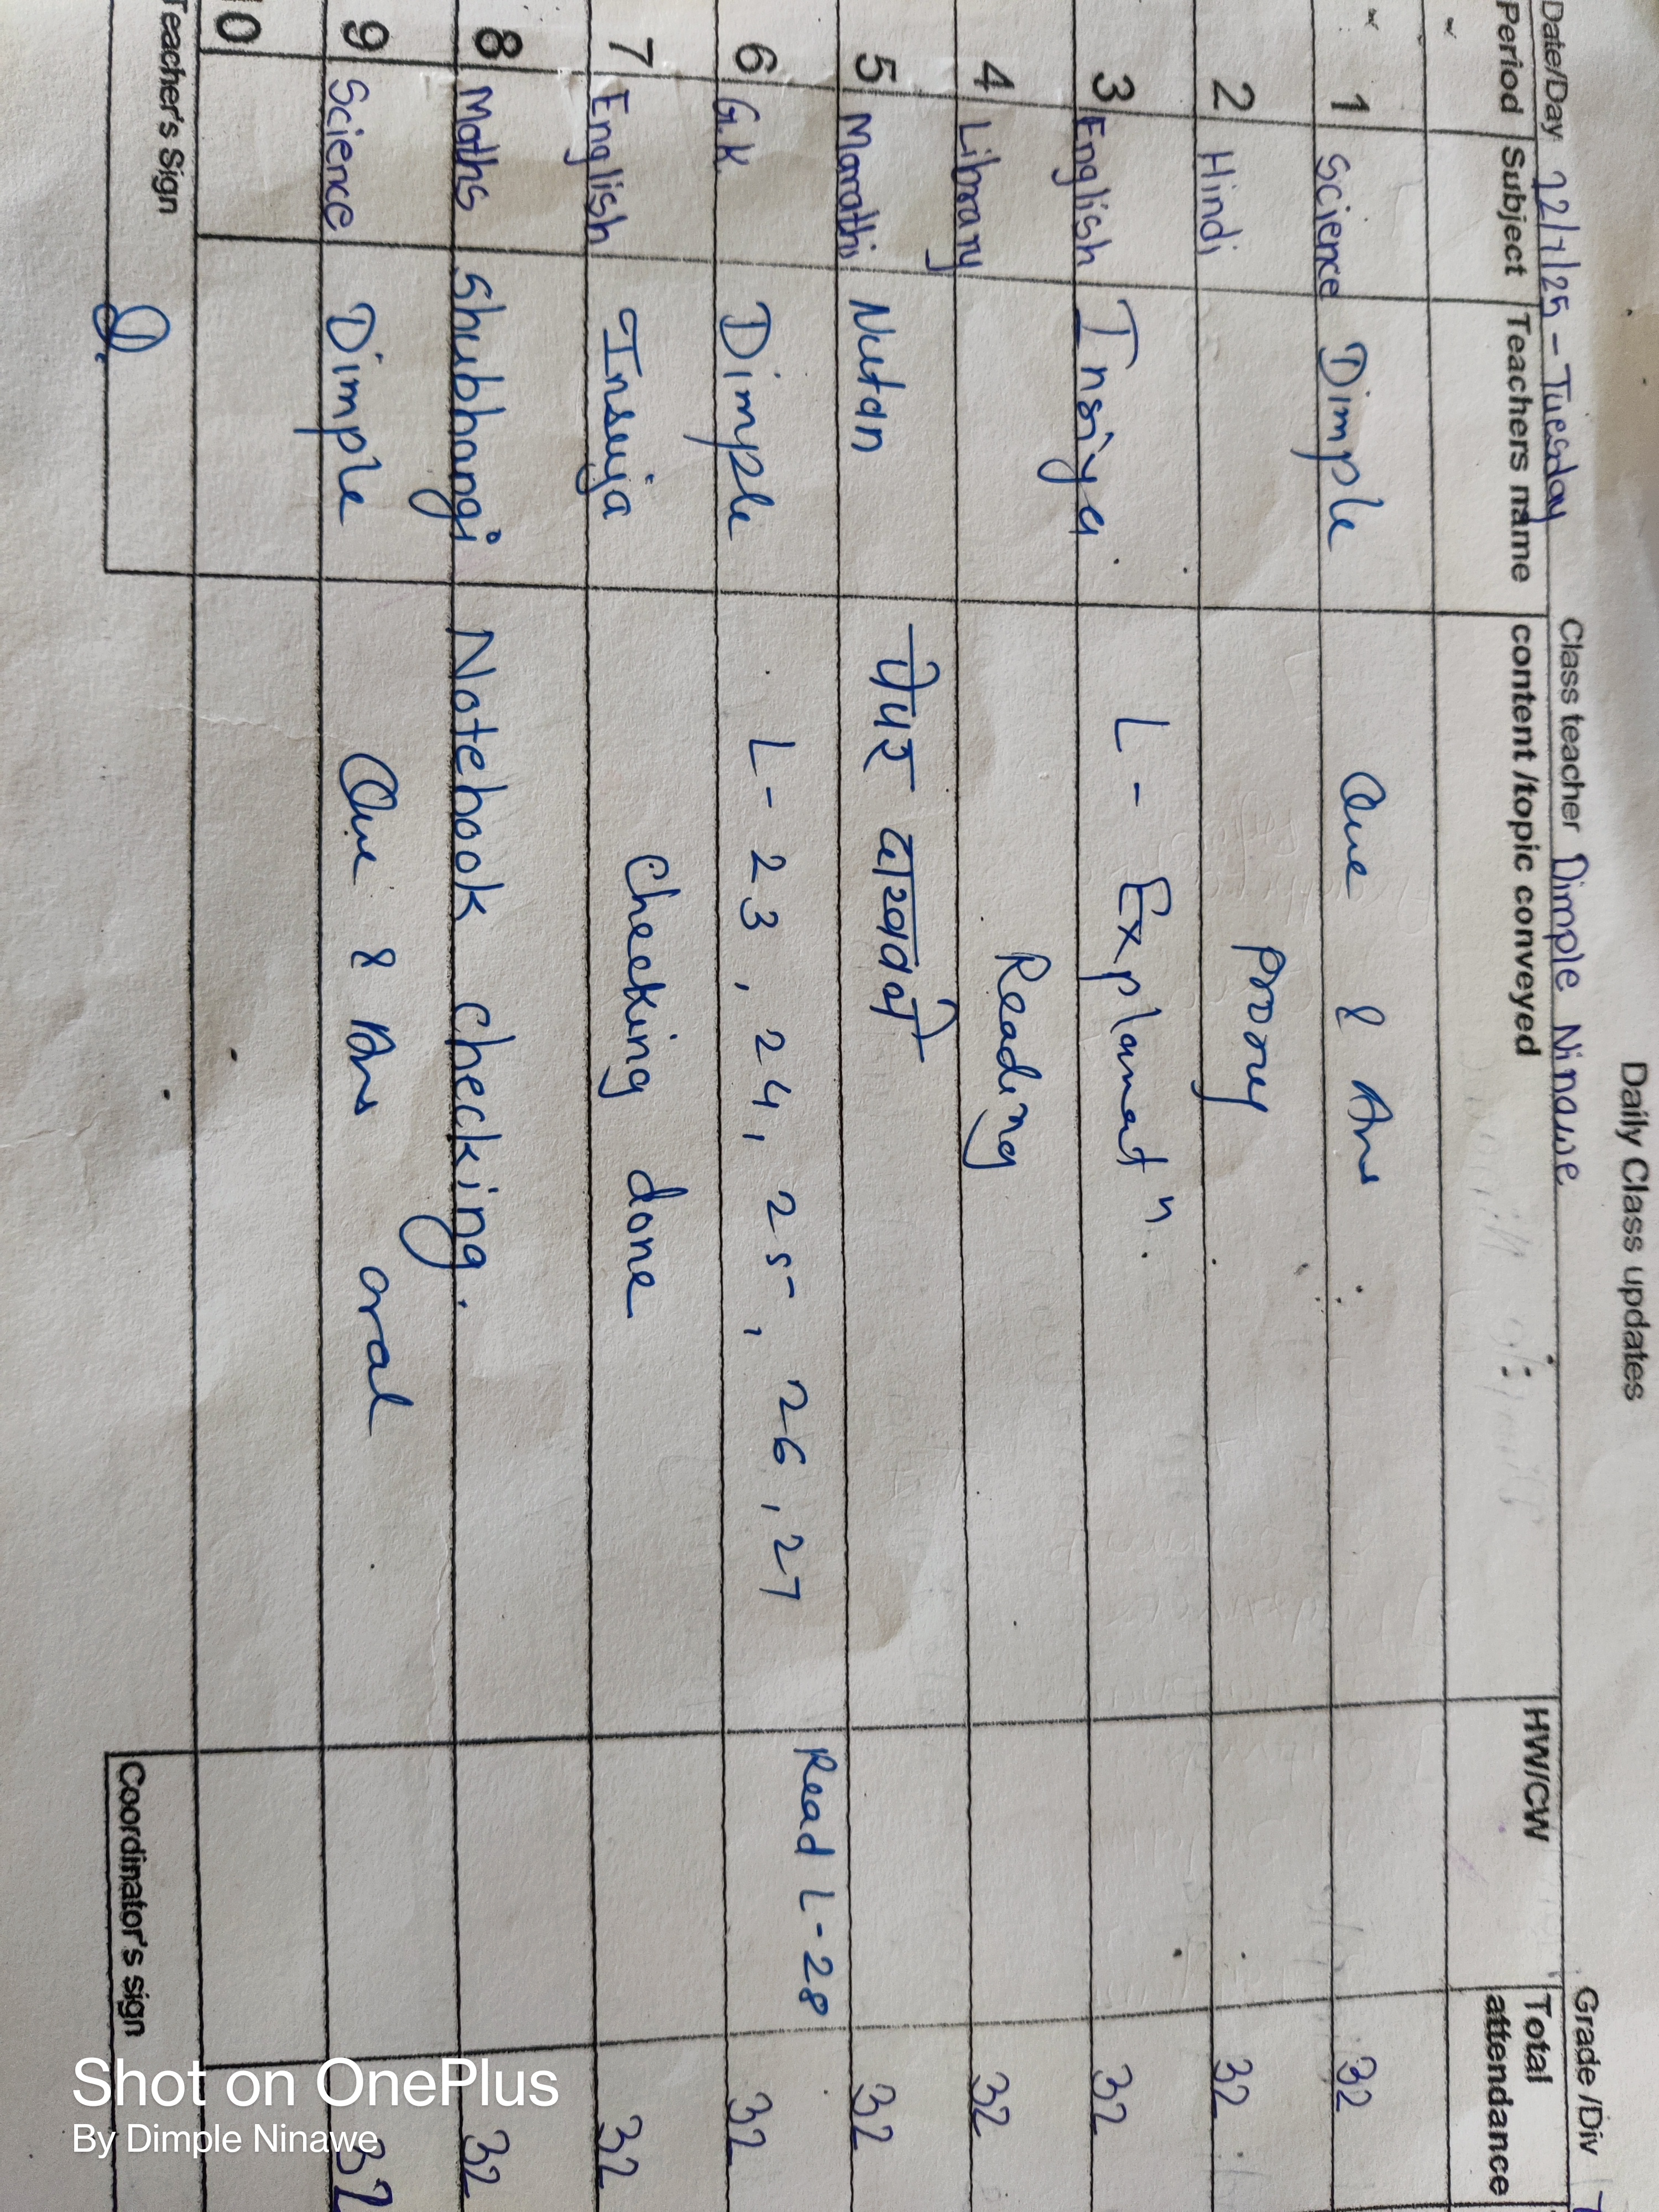 Daily Class updates
Date/Day 22/7/25 - Tuesday Class teacher Dimple Ninawe Grade /Div
Period Subject Teachers name content /topic conveyed HW/CW Total attendance
1 Science Dimple Que & Ans 32
2 Hindi Proxy 32
3 English Insiya L - Explanatⁿ. 32
4 Library Reading 32
5 Marathi Nutan पेपर 32
6 G.K. Dimple L - 23, 24, 25, 26, 27 Read L - 28 32
7 English Insiya Checking done 32
8 Maths Shubhangi Notebook checking. 32
9 Science Dimple Que & Ans oral 32
10
Teacher's Sign Coordinator's sign
Shot on OnePlus
By Dimple Ninawe